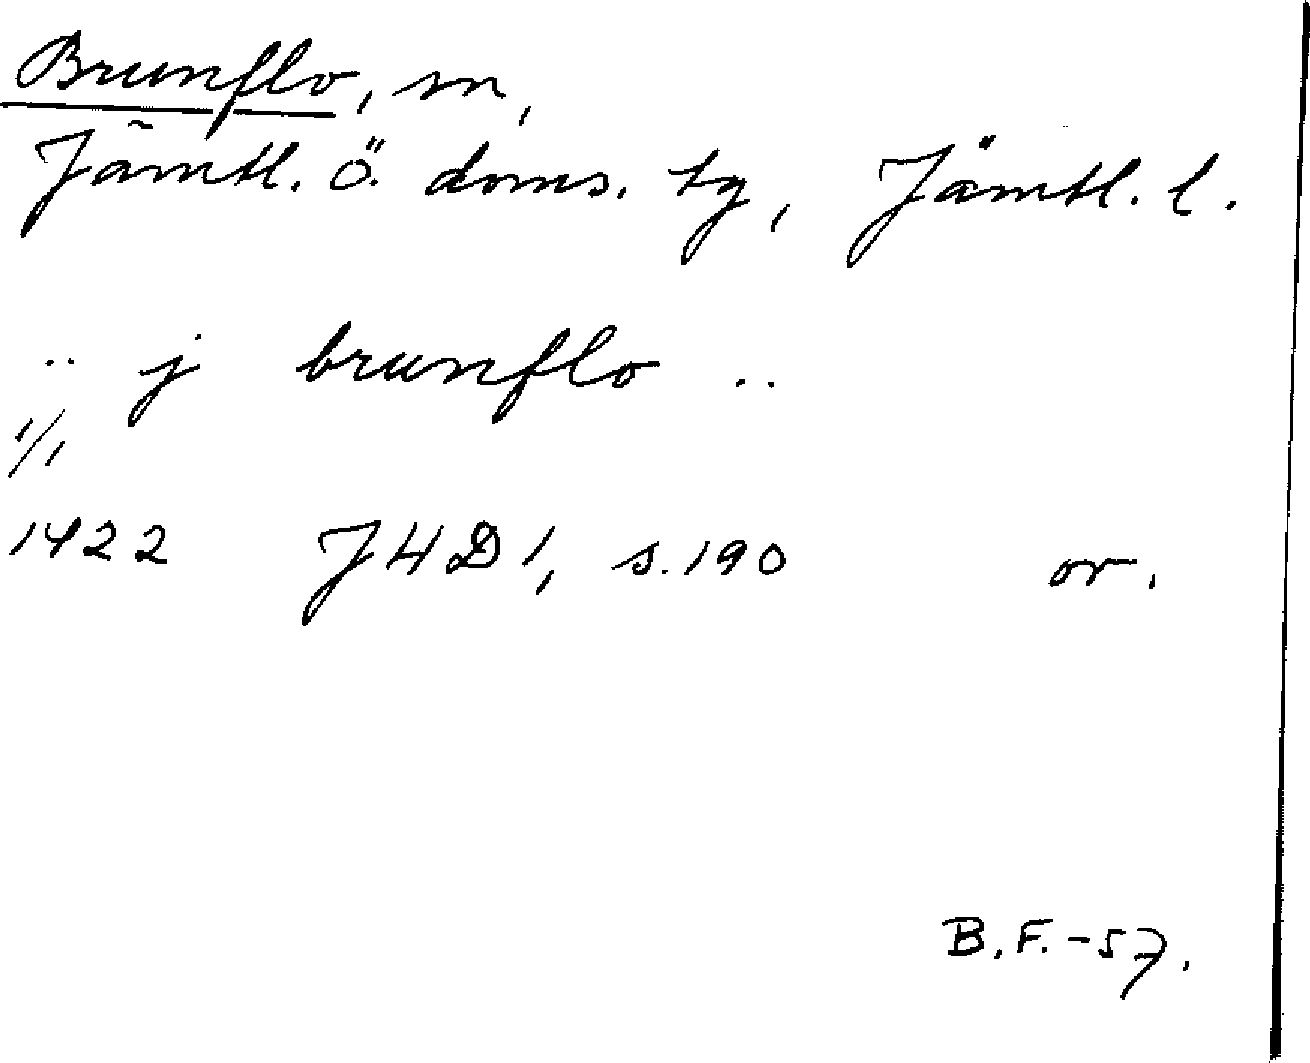 Brunflo, sn,
Jämtl. ö. doms. tg, Jämtl. l.
.. j brunflo ..
1/1
1422 JHD 1, s. 190 or.
B.F. -57.